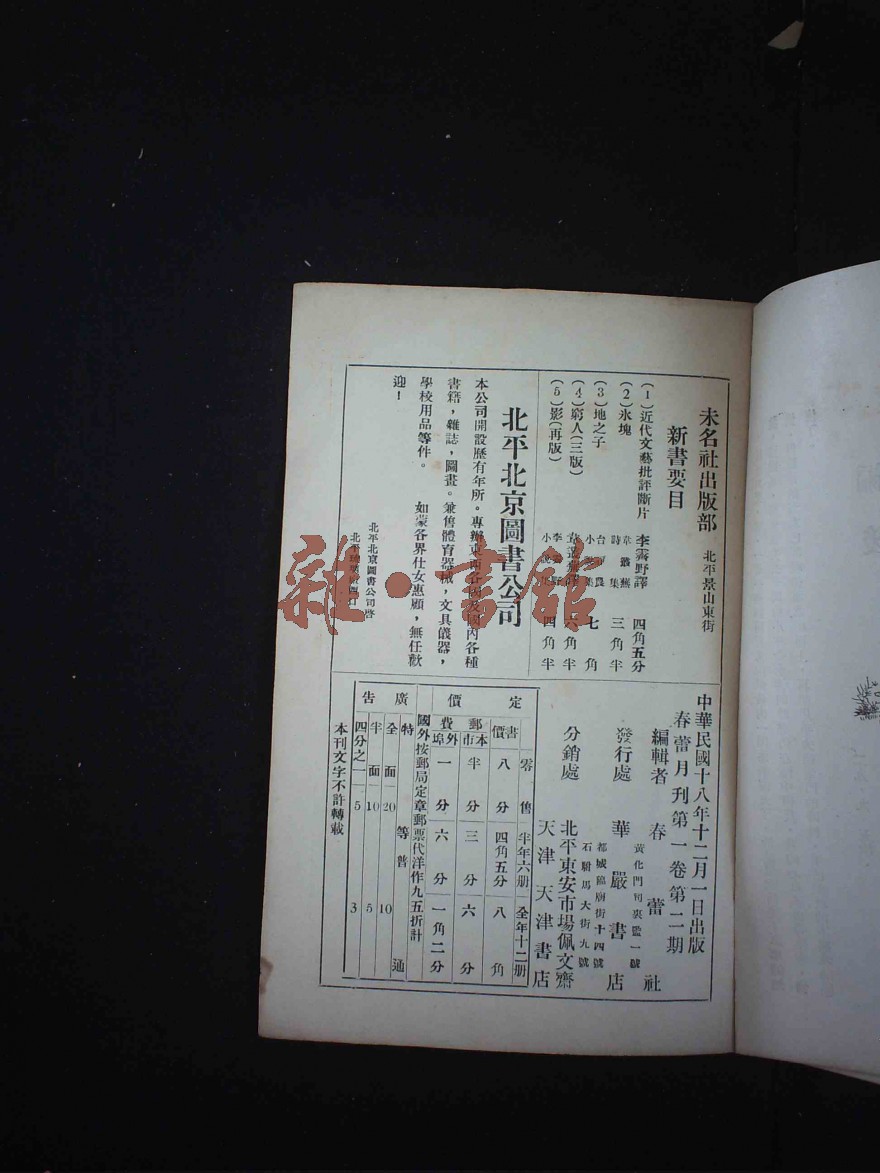 未名社出版部 北平景山東街
新書要目
(1)近代文藝批評斷片 李霽野譯 四角五分
(2)氷塊 韋叢蕪 詩集 三角半
(3)地之子 小 集 七角
(4)窮人(三版) 韋叢蕪譯 六角半
(5)影(再版) 李霽野 小 四角半
北平北京圖書公司
本公司開設歷有年所。專辦東西各國及國內各種
書籍,雜誌,圖畫。兼售體育器械,文具儀器,
學校用品等件。 如蒙各界仕女惠顧,無任歡
迎!
北平北京圖書公司啓
中華民國十八年十二月一日出版
春蕾月刊第一卷第二期
編輯者 春蕾社
黃化門司裏監一號
發行處 華嚴書店
都城隍廟街十四號
石駙馬大街九號
分銷處 北平東安市場佩文齋
天津天津書店
定價
零售 半年六册 全年十二册
書價 八分 四角五分 八角
郵費 本市 半分 三分 六分
外埠 一分 六分 一角二分
國外按郵局定章郵票代洋作九五折計
廣告
特等 普通
全面 20 10
半面 10 5
四分之一 5 3
本刊文字不許轉載
雜·書館